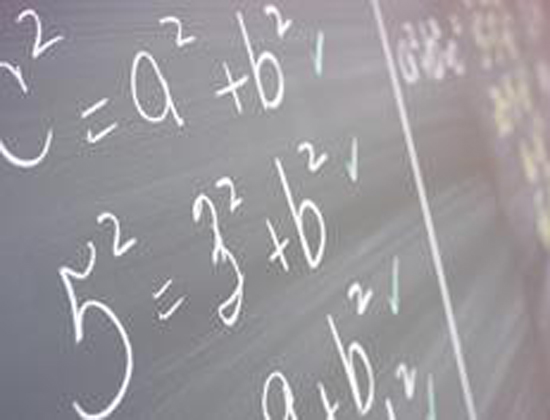 c² = a² + b² ✓
5² = 3² + b² ✓
a + b² ✓
²